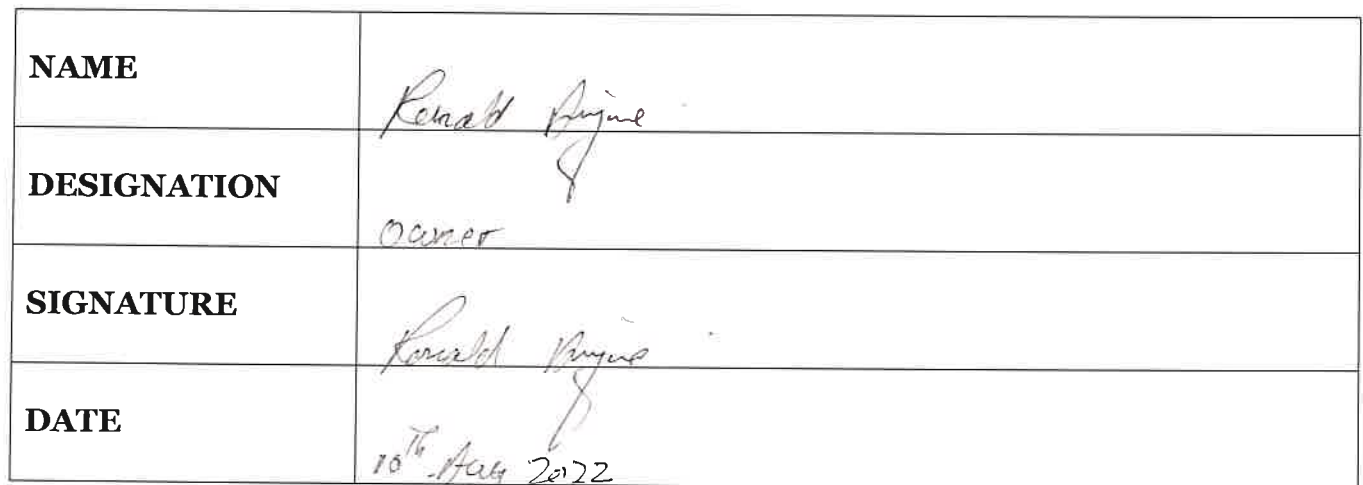 NAME
Ronald
DESIGNATION
owner
SIGNATURE
Ronald
DATE
10th Aug 2022